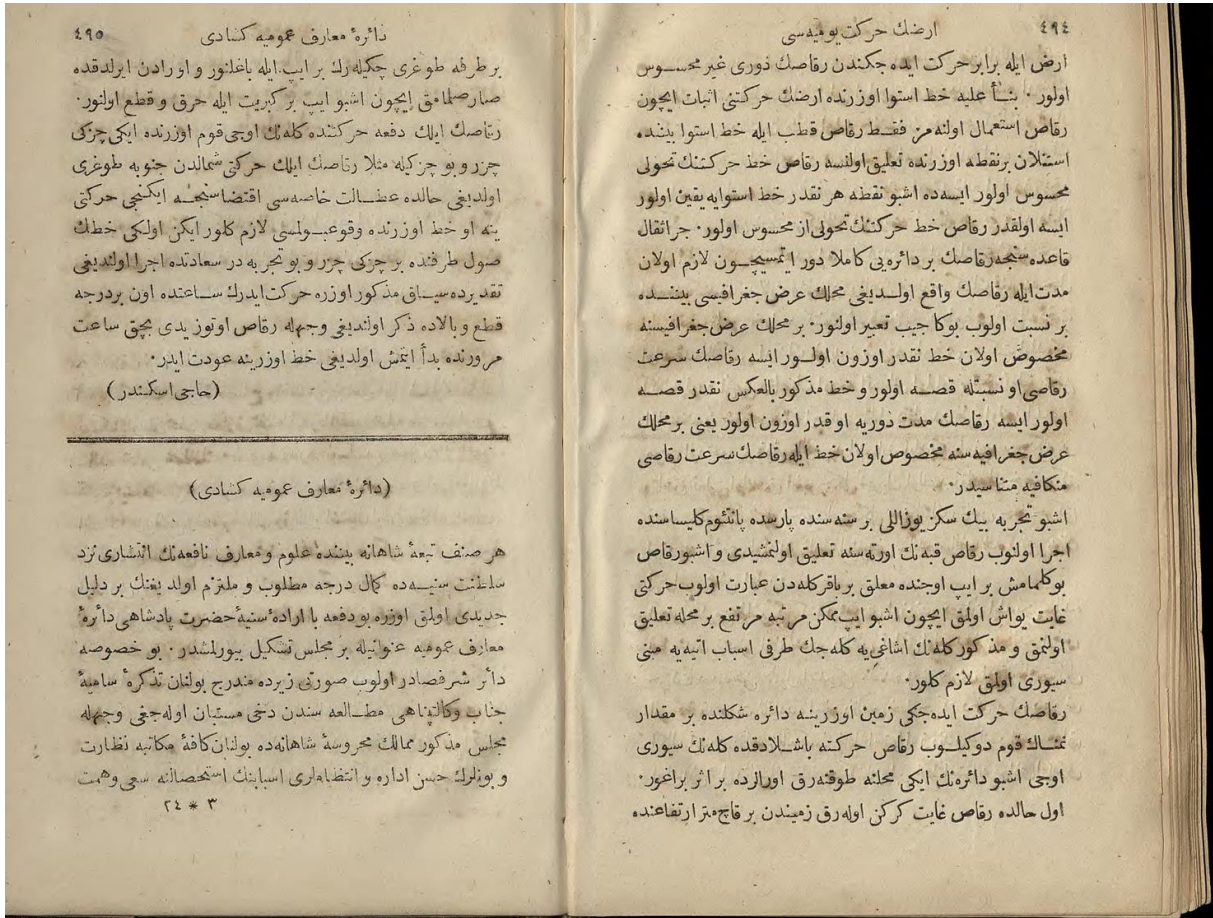 ٤٩٤
ارضك حركت يوميه سى
ارض ايله برابر حركت ايده جكندن رقاصك دورى غير محسوس
اولور ٠ بنــأ عليه خط استوا اوزرنده ارضك حركتنى اثبات ايچون
رقاص استعمال اولنه مز فقـط رقاص قطب ايله خط استوا بيننده
استنلان برنقطه اوزرنده تعليق اولنسه رقاص خط حركتنك تحولى
محسوس اولور ايسه ده اشبو نقطه هر نقدر خط استوايه يقين اولور
ايسه اولقدر رقاص خط حركتنك تحولى از محسوس اولور٠ جراثقال
قاعده سنجه رقاصك بر دائره يى كاملا دور ايتمسيچــون لازم اولان
مدت ايله رقاصك واقع اولــديغى محلك عرض جغرافيسى بيننــده
بر نسبت اولوب بوكا جيب تعبير اولنور٠ بر محلك عرض جغرافيسنه
مخصوص اولان خط نقدر اوزون اولــور ايسه رقاصك سرعت
رقاصى او نسبتله قصــه اولور و خط مذكور بالعكس نقدر قصــه
اولور ايسه رقاصك مدت دوريه او قدر اوزون اولور يعنى بر محلك
عرض جغرافيه سنه مخصوص اولان خط ايله رقاصك سرعت رقاصى
متكافيه متناسيدر٠
اشبو تجربه بيك سكز يوز اللى بر سنه سنده پارسده پانتئوم كليساسنده
اجرا اولنوب رقاص قبه نك اورته سنه تعليق اولنمشيدى و اشبو رقاص
بوكلمامش بر ايپ اوجنده معلق بر باقر كله دن عبارت اولوب حركتى
غايت يواش اولمق ايچون اشبو ايپ ممكن مرتبه مرتفع بر محله تعليق
اولنمق و مذكور كله نك اشاغى يه كله جك طرفى اسباب اتيه يه مبنى
سيورى اولمق لازم كلور٠
رقاصك حركت ايده جكى زمين اوزرينه دائره شكلنده بر مقدار
نمنــاك قوم دوكيلــوب رقاص حركته باشــلادقده كله نك سيورى
اوجى اشبو دائره نك ايكى محلنه طوقنه رق اورالرده بر اثر براغور٠
اول حالده رقاص غايت كركن اوله رق زميندن بر قاچ متر ارتفاعنده
٤٩٥
دائرهٔ معارف عموميه كشادى
بر طرفه طوغرى چكيله رك بر ايپ ايله باغلنور و اورادن ايرلدقده
صارصلمامق ايچون اشبو ايپ بر كبريت ايله حرق و قطع اولنور٠
رقاصك ايلك دفعه حركتنده كله نك اوجى قوم اوزرنده ايكى چزكى
چزر و بو چزكيله مثلا رقاصك ايلك حركتى شمالدن جنوبه طوغرى
اولديغى حالده عطــالت خاصه سى اقتضاسنجــه ايكنجى حركتى
ينه او خط اوزرنده وقوعبــولمسى لازم كلور ايكن اولكى خطك
صول طرفنده بر چزكى چزر و بو تجربه در سعادتده اجرا اولنديغى
تقديرده سيــاق مذكور اوزره حركت ايدرك ســاعتده اون بر درجه
قطع و بالاده ذكر اولنديغى وجهله رقاص اوتوز يدى بچق ساعت
مرورنده بدأ ايتمش اولديغى خط اوزرينه عودت ايدر٠
(حاجى اسكــندر)
(دائرهٔ معارف عموميه كشادى)
هر صنف تبعهٔ شاهانه بيننده علوم و معارف نافعه نك انتشارى نزد
سلطنت سنيــه ده كمال درجه مطلوب و ملتزم اولديغنك بر دليل
جديدى اولمق اوزره بو دفعه با ارادهٔ سنيهٔ حضرت پادشاهى دائرهٔ
معارف عموميه عنوانيله بر مجلس تشكيل بيورلمشدر٠ بو خصوصه
دائر شرفصادر اولوب صورتى زيرده مندرج بولنان تذكرهٔ ساميهٔ
جناب وكالتپناهى مطــالعه سندن دخى مستبان اوله جغى وجهله
مجلس مذكور ممالك محروسهٔ شاهانه ده بولنان كافهٔ مكاتبه نظارت
و بونلرك حسن اداره و انتظاملرى اسبابنك استحصالنه سعى و همت
٣ * ٢٤